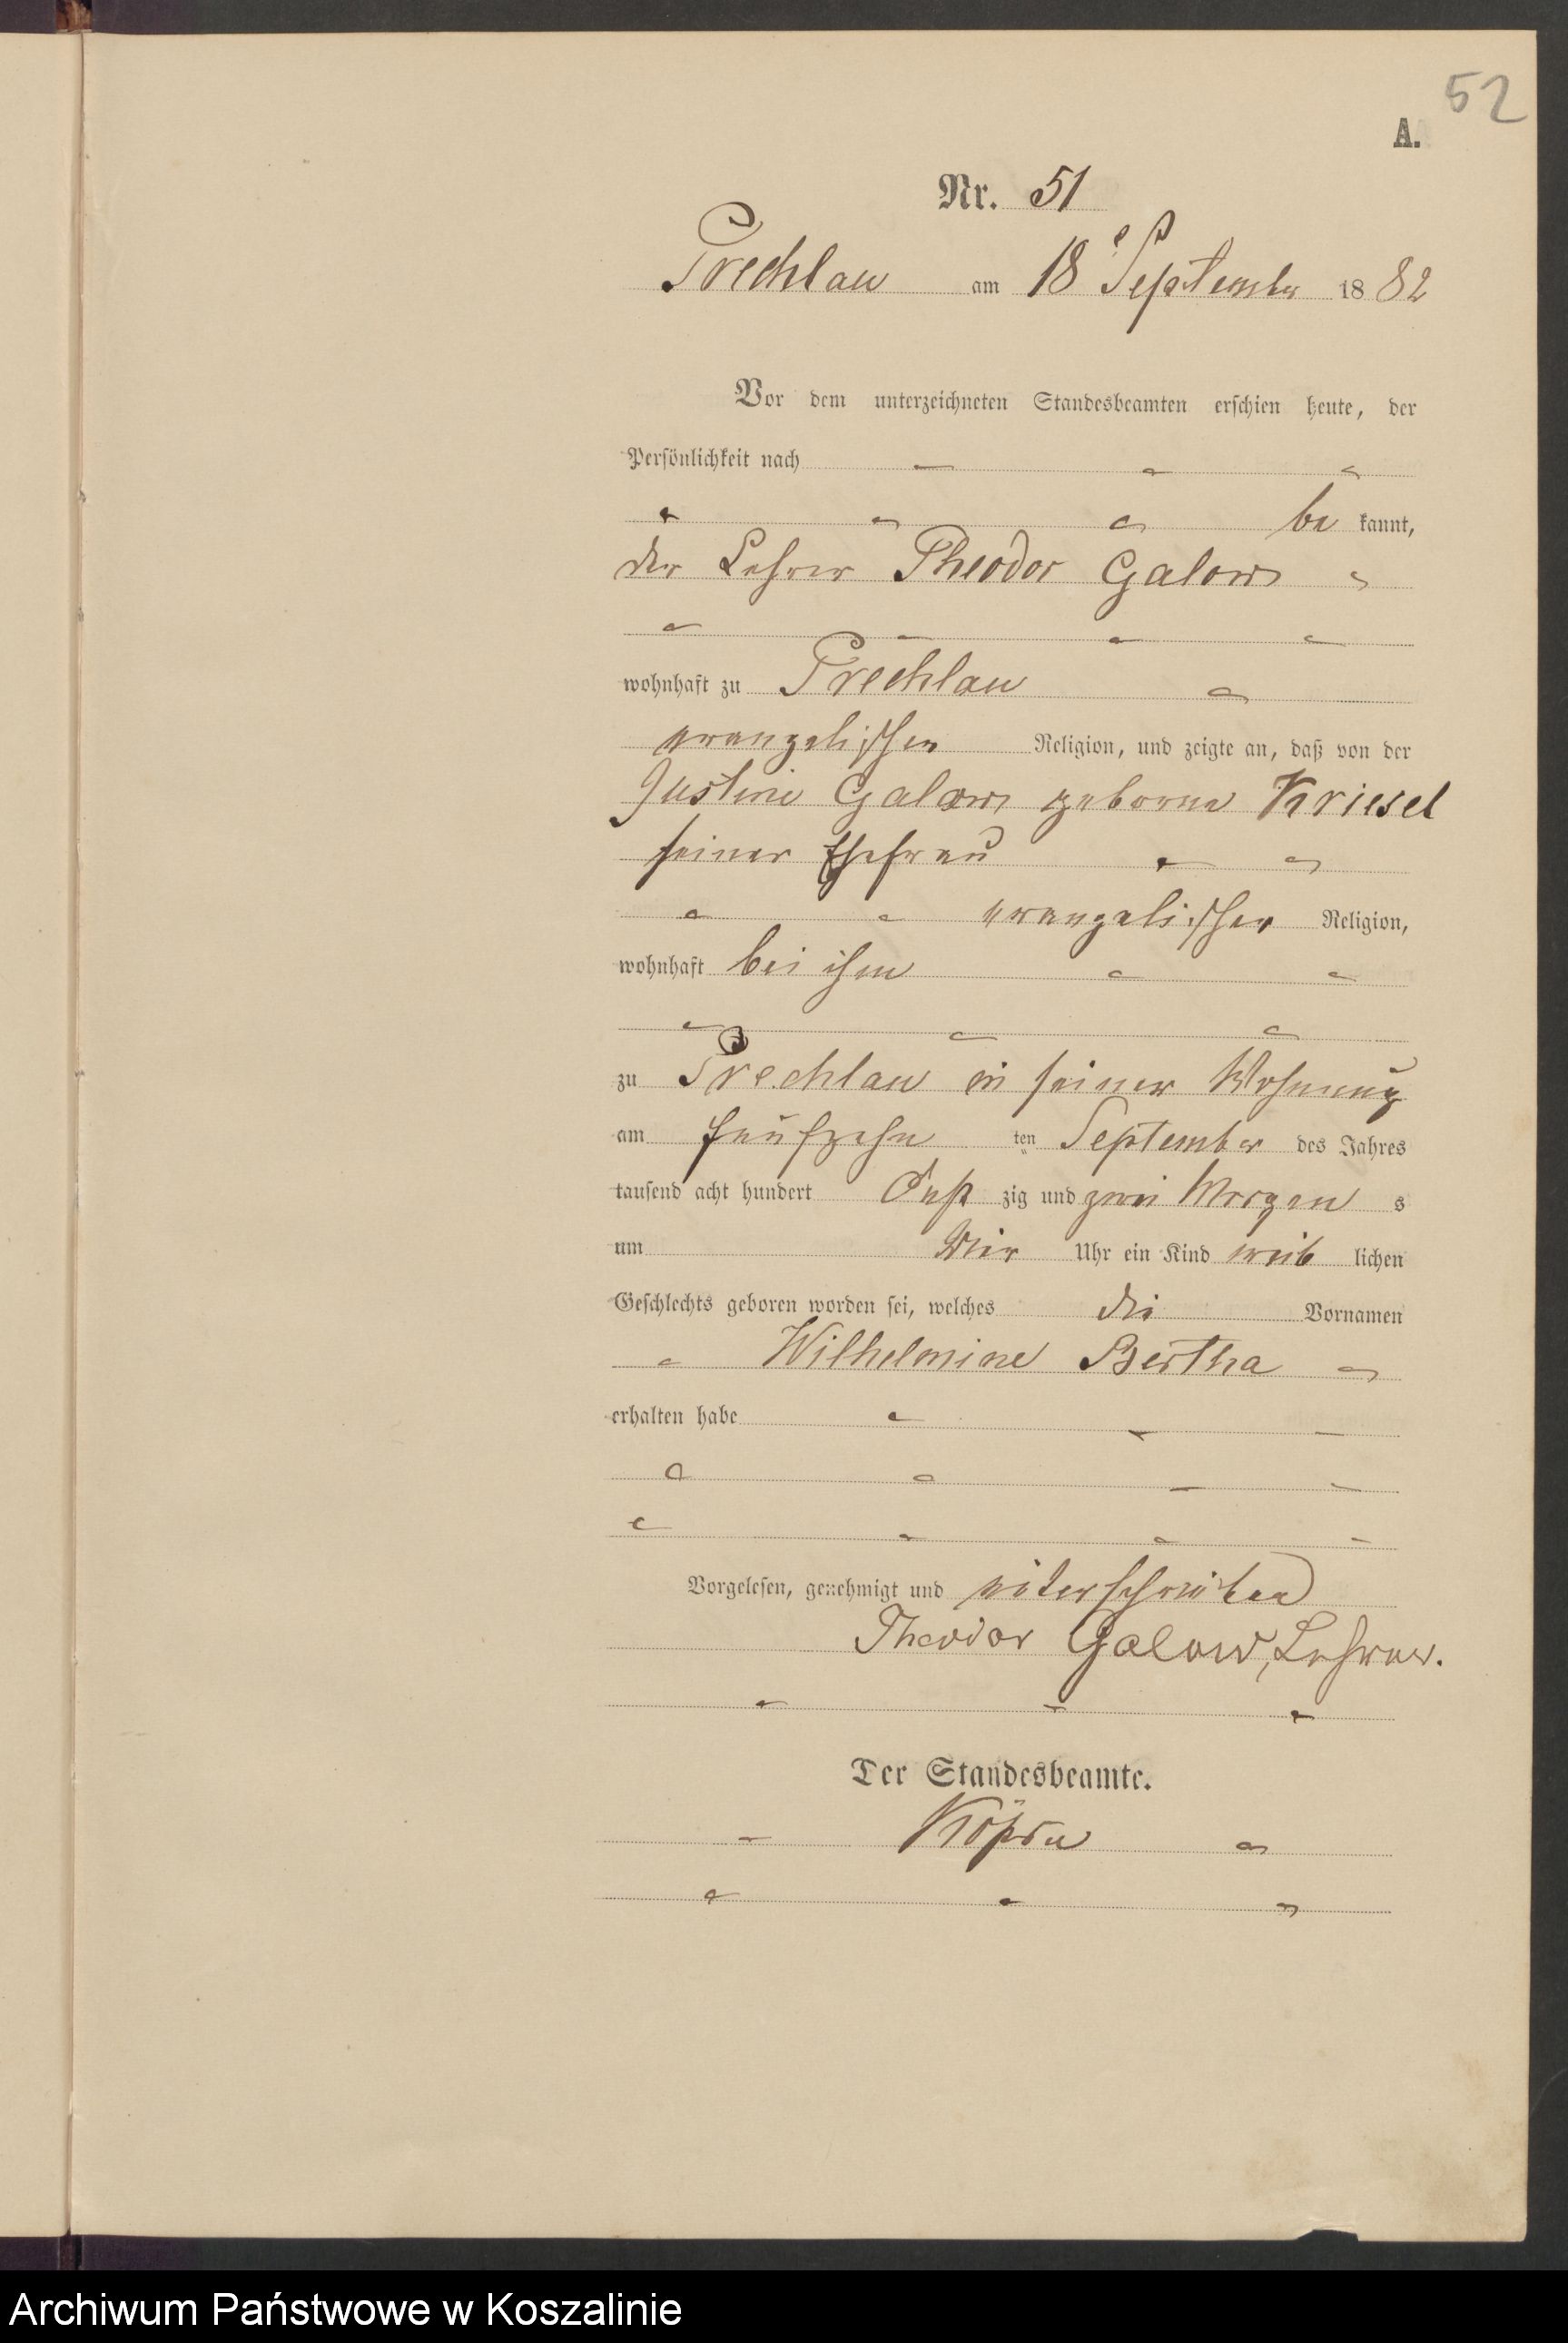 52
A.
Nr. 51
Prechlau am 18 September 1882
Vor dem unterzeichneten Standesbeamten erschien heute, der
Persönlichkeit nach
be kannt,
der Lehrer Theodor Galow
wohnhaft zu Prechlau
evangelischer Religion, und zeigte an, daß von der
Justine Galow geborne Kriesel
seiner Ehefrau
evangelischer Religion,
wohnhaft bei ihm
zu Prechlau in seiner Wohnung
am fünfzehn ten September des Jahres
tausend acht hundert acht zig und zwei Morgen s
um Uhr ein Kind weib lichen
Geschlechts geboren worden sei, welches die Vornamen
Wilhelmine Bertha
erhalten habe
Vorgelesen, genehmigt und unterschrieben
Theodor Galow, Lehrer.
Der Standesbeamte.
Archiwum Państwowe w Koszalinie